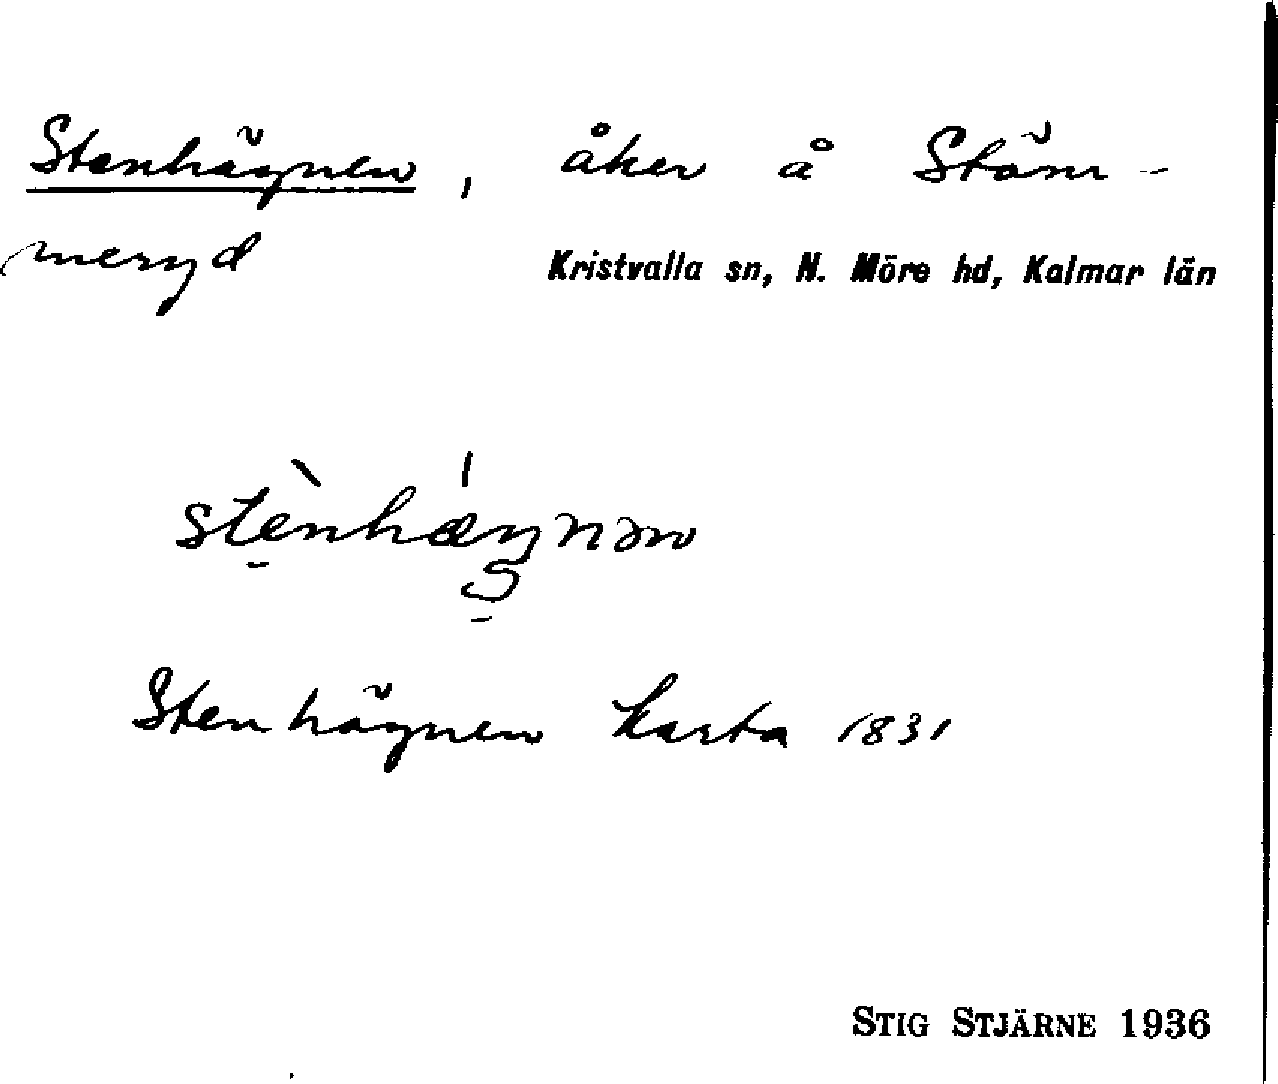 Stenhägnen, åker å Stäm-
meryd
Kristvalla sn, N. Möre hd, Kalmar län
Stenhägnen karta 1831
STIG STJÄRNE 1936